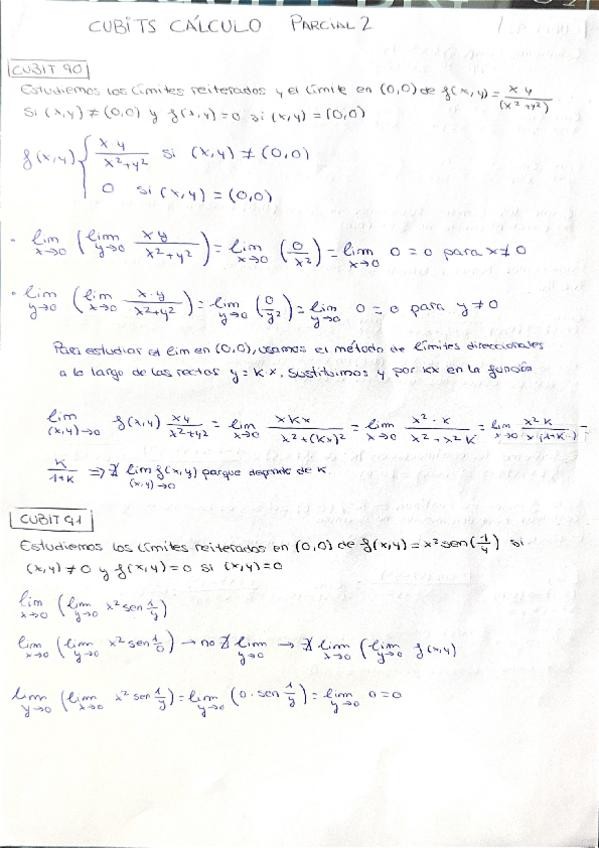 CUBITS CÁLCULO PARCIAL 2
CUBIT 90
Estudiemos los límites reiterados y el límite en (0,0) de f(x,y) = xy/(x²+y²)
Si (x,y) ≠ (0,0) y f(x,y) = 0 si (x,y) = (0,0)
f(x,y) { xy/(x²+y²) si (x,y) ≠ (0,0)
0 si (x,y) = (0,0)
· lim x→0 (lim y→0 xy/(x²+y²)) = lim x→0 (0/x²) = lim x→0 0 = 0 para x≠0
· lim y→0 (lim x→0 x·y/(x²+y²)) = lim y→0 (0/y²) = lim y→0 0 = 0 para y≠0
Para estudiar el lim en (0,0), usamos el método de límites direccionales
a lo largo de las rectas y = Kx. Sustituimos y por kx en la función
lim (x,y)→0 f(x,y) xy/(x²+y²) = lim x→0 xKx/(x²+(Kx)²) = lim x→0 x²·K/(x²+x²K) = lim x→0 x²K/(x(1+K)) =
K/(1+K) ⇒ ∄ lim (x,y)→0 f(x,y) porque depende de K.
CUBIT 91
Estudiemos los límites reiterados en (0,0) de f(x,y) = x² sen(1/y) si
(x,y) ≠ 0 y f(x,y) = 0 si (x,y) = 0
lim x→0 (lim y→0 x² sen 1/y)
lim x→0 (lim y→0 x² sen 1/0) → no ∄ lim y→0 → ∄ lim x→0 (lim y→0 f(x,y)
lim y→0 (lim x→0 x² sen 1/y) = lim y→0 (0·sen 1/y) = lim y→0 0 = 0